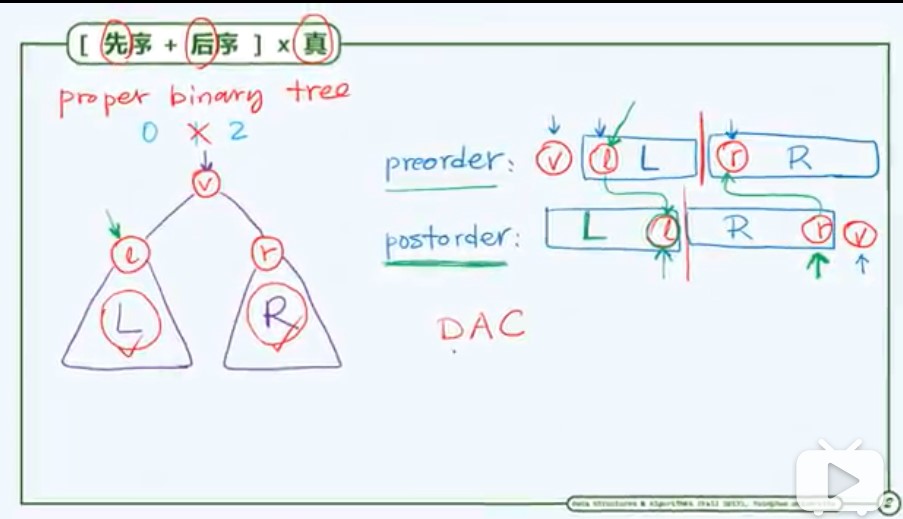 [先序 + 后序 ] x 真
proper binary tree
0 1 2
v
l
r
L
R
preorder: v l L r R
postorder: L l R r v
DAC
Data Structures & Algorithms (Fall 2013), Tsinghua University
2